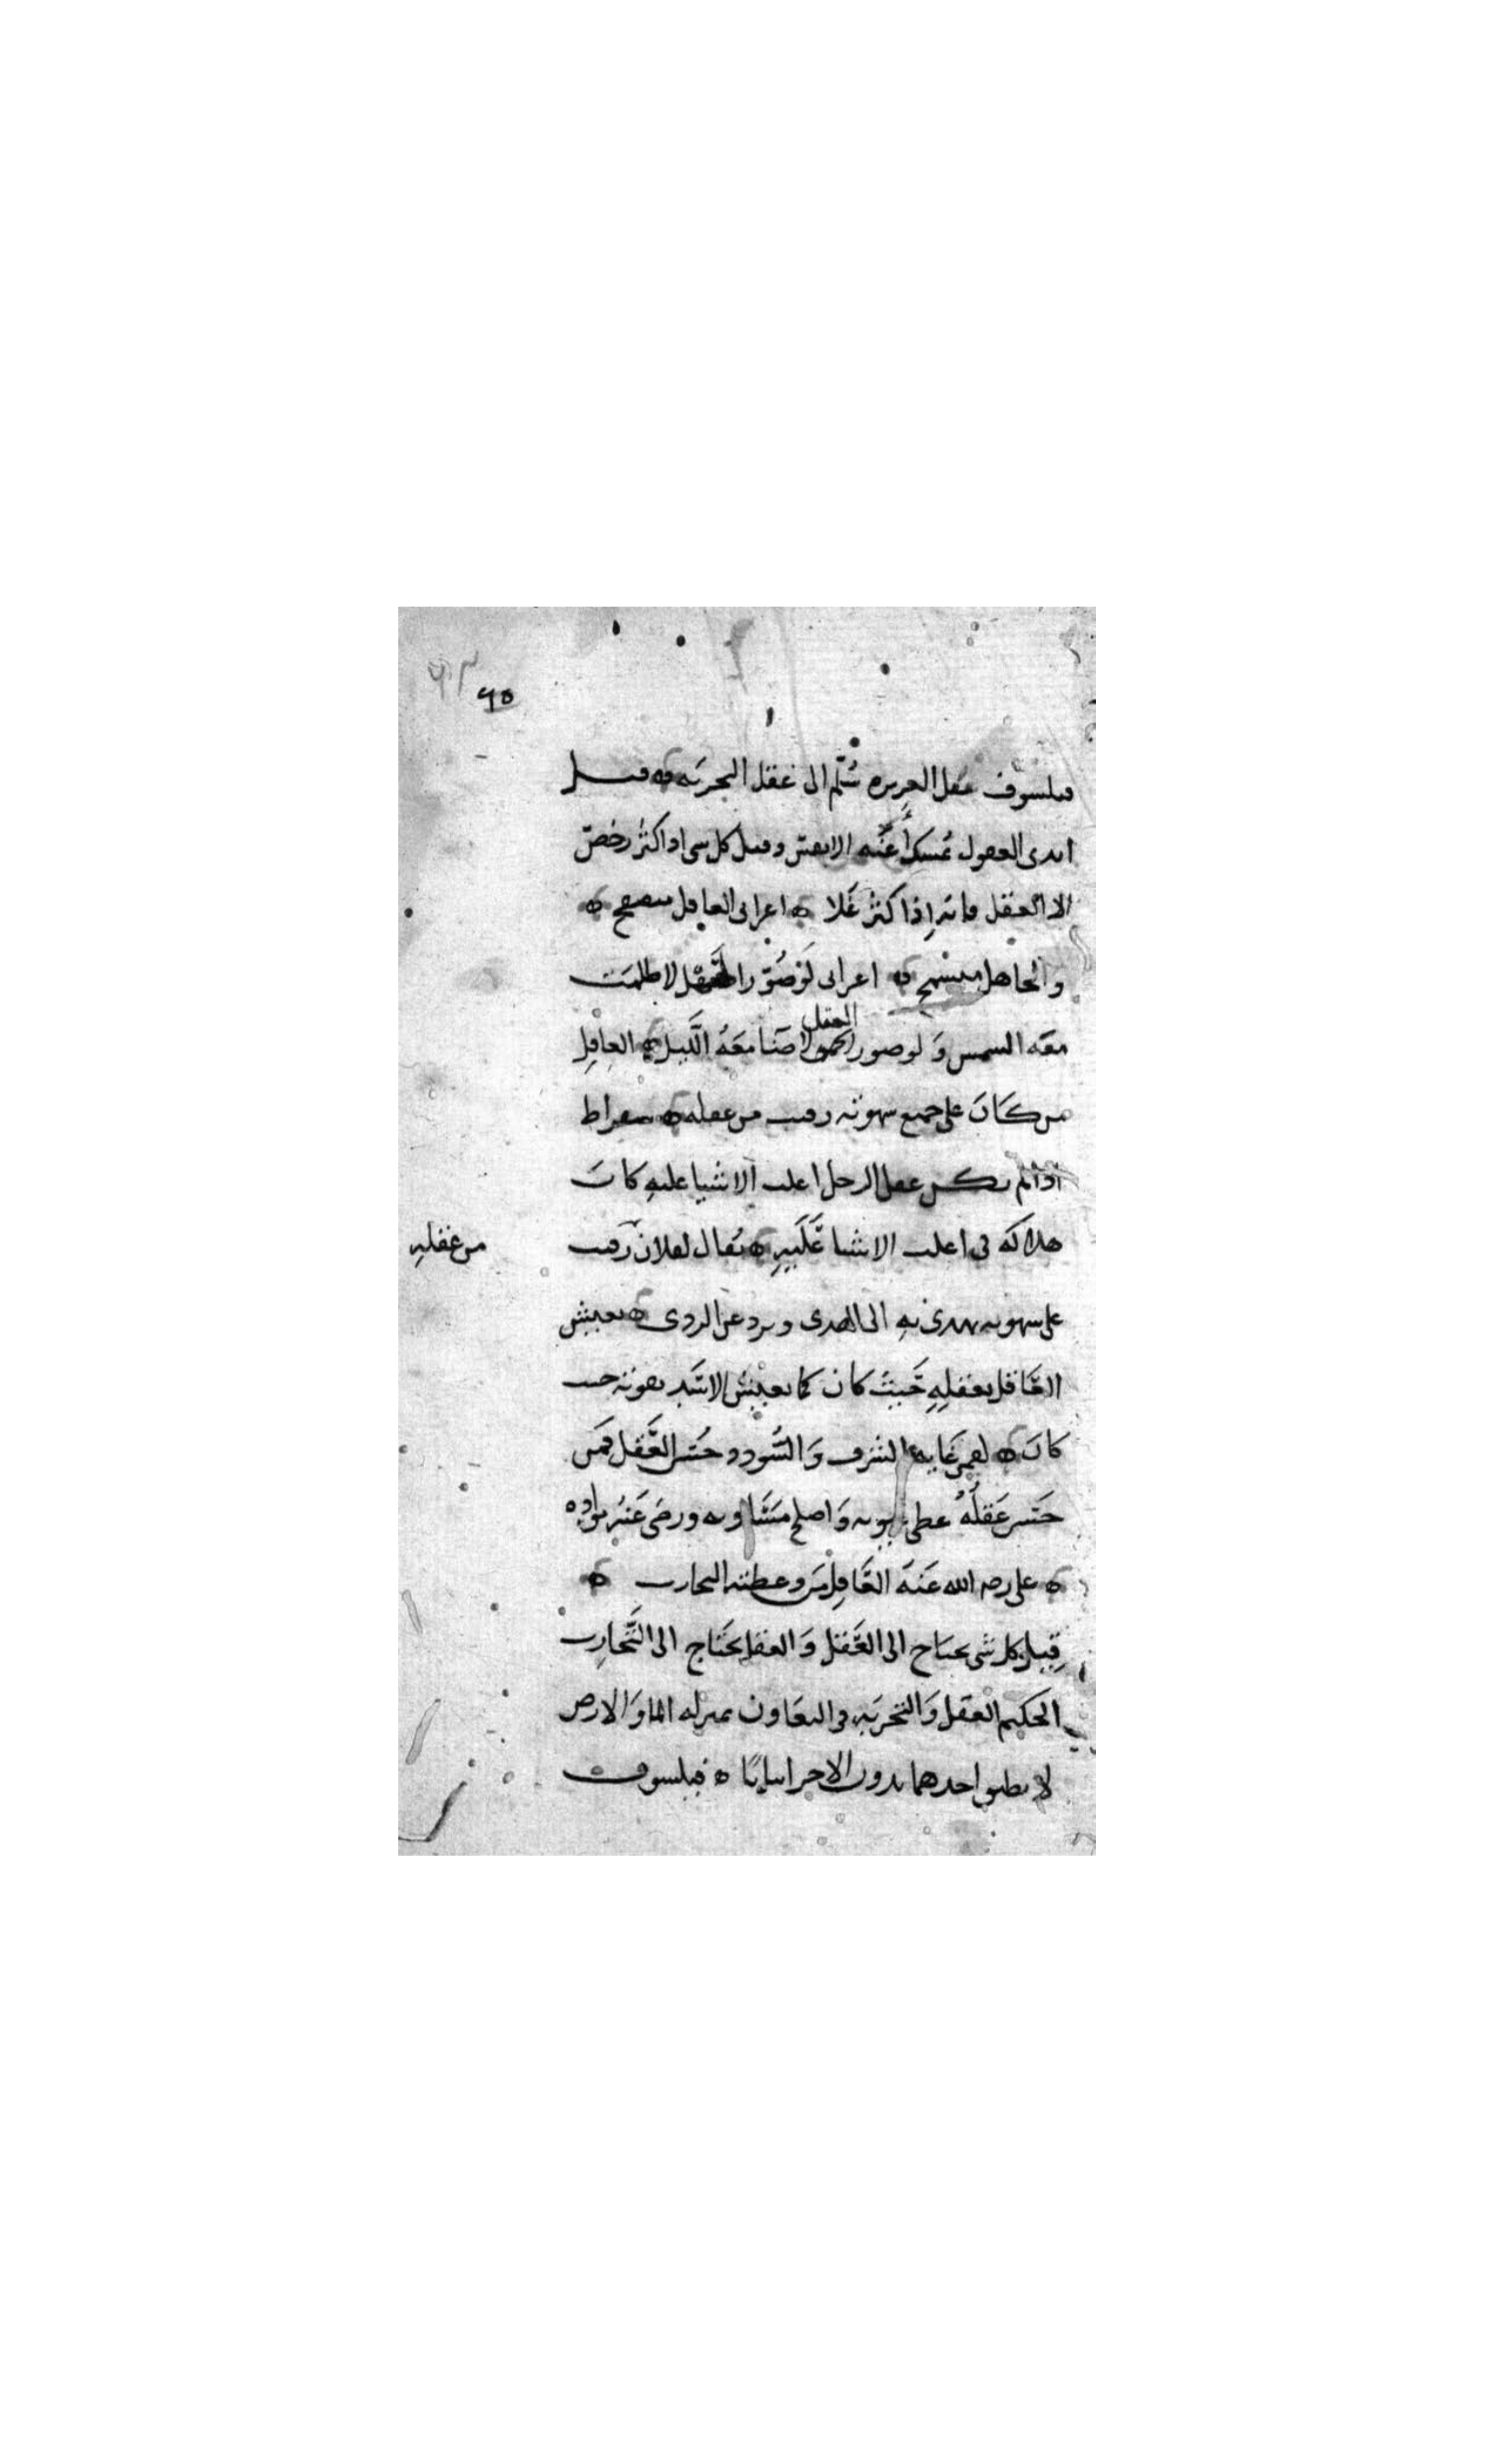 ٦٥
فيلسوف عقل الغريزه سُلّم الى عقل التجربه ه قيل
ايدى العقول تمسك أعنّه الانفس وقيل كل شى اذا كثر رخص
الا العقل فانه اذا كثر غَلا ه اعرابى العاقل متصفح ه
والجاهل متسمح ه اعرابى لَو صُوّر العقل لاظلمت
معه الشمس وَلو صور الحمق لاضَا معَهُ الليل ه العاقِل
العقل
من كَانَ على جميع شهوته رقيب من عقله ه سقراط
اذا لم يكن عقل الرجل اغلب الاشيا عليهِ كانَ
هلاكه فى اغلب الاشيا عَلَيهِ ه يُقال لفلان رقيب
من عَقلهِ
على شهوته يهدى به الى الهدى ويرد عن الردى ه يعيش
العَاقل بعقلِهِ حَيثُ كان كما يعيش الاسَد بقوته حيث
كانَ ه لقمن غَايه الشرف وَالسُّودد حُسن العَقل فمَن
حَسن عَقلُهُ غطى عيوبه وَاصلح مَسَاويه ورضىَ عَنهُ مولاه
ه على رضه الله عَنهُ العَاقِل مَن وعظته التجارب ه
قِيل كل شى يحتاح الى العَقل وَالعقل يحتَاج الى التَّجارِب
الحكيم العقل وَالتجربَه فى التعَاون بمنزله الما وَالارض
لا يطيق احدهما بدون الاخر انباتًا ه فيلسوف